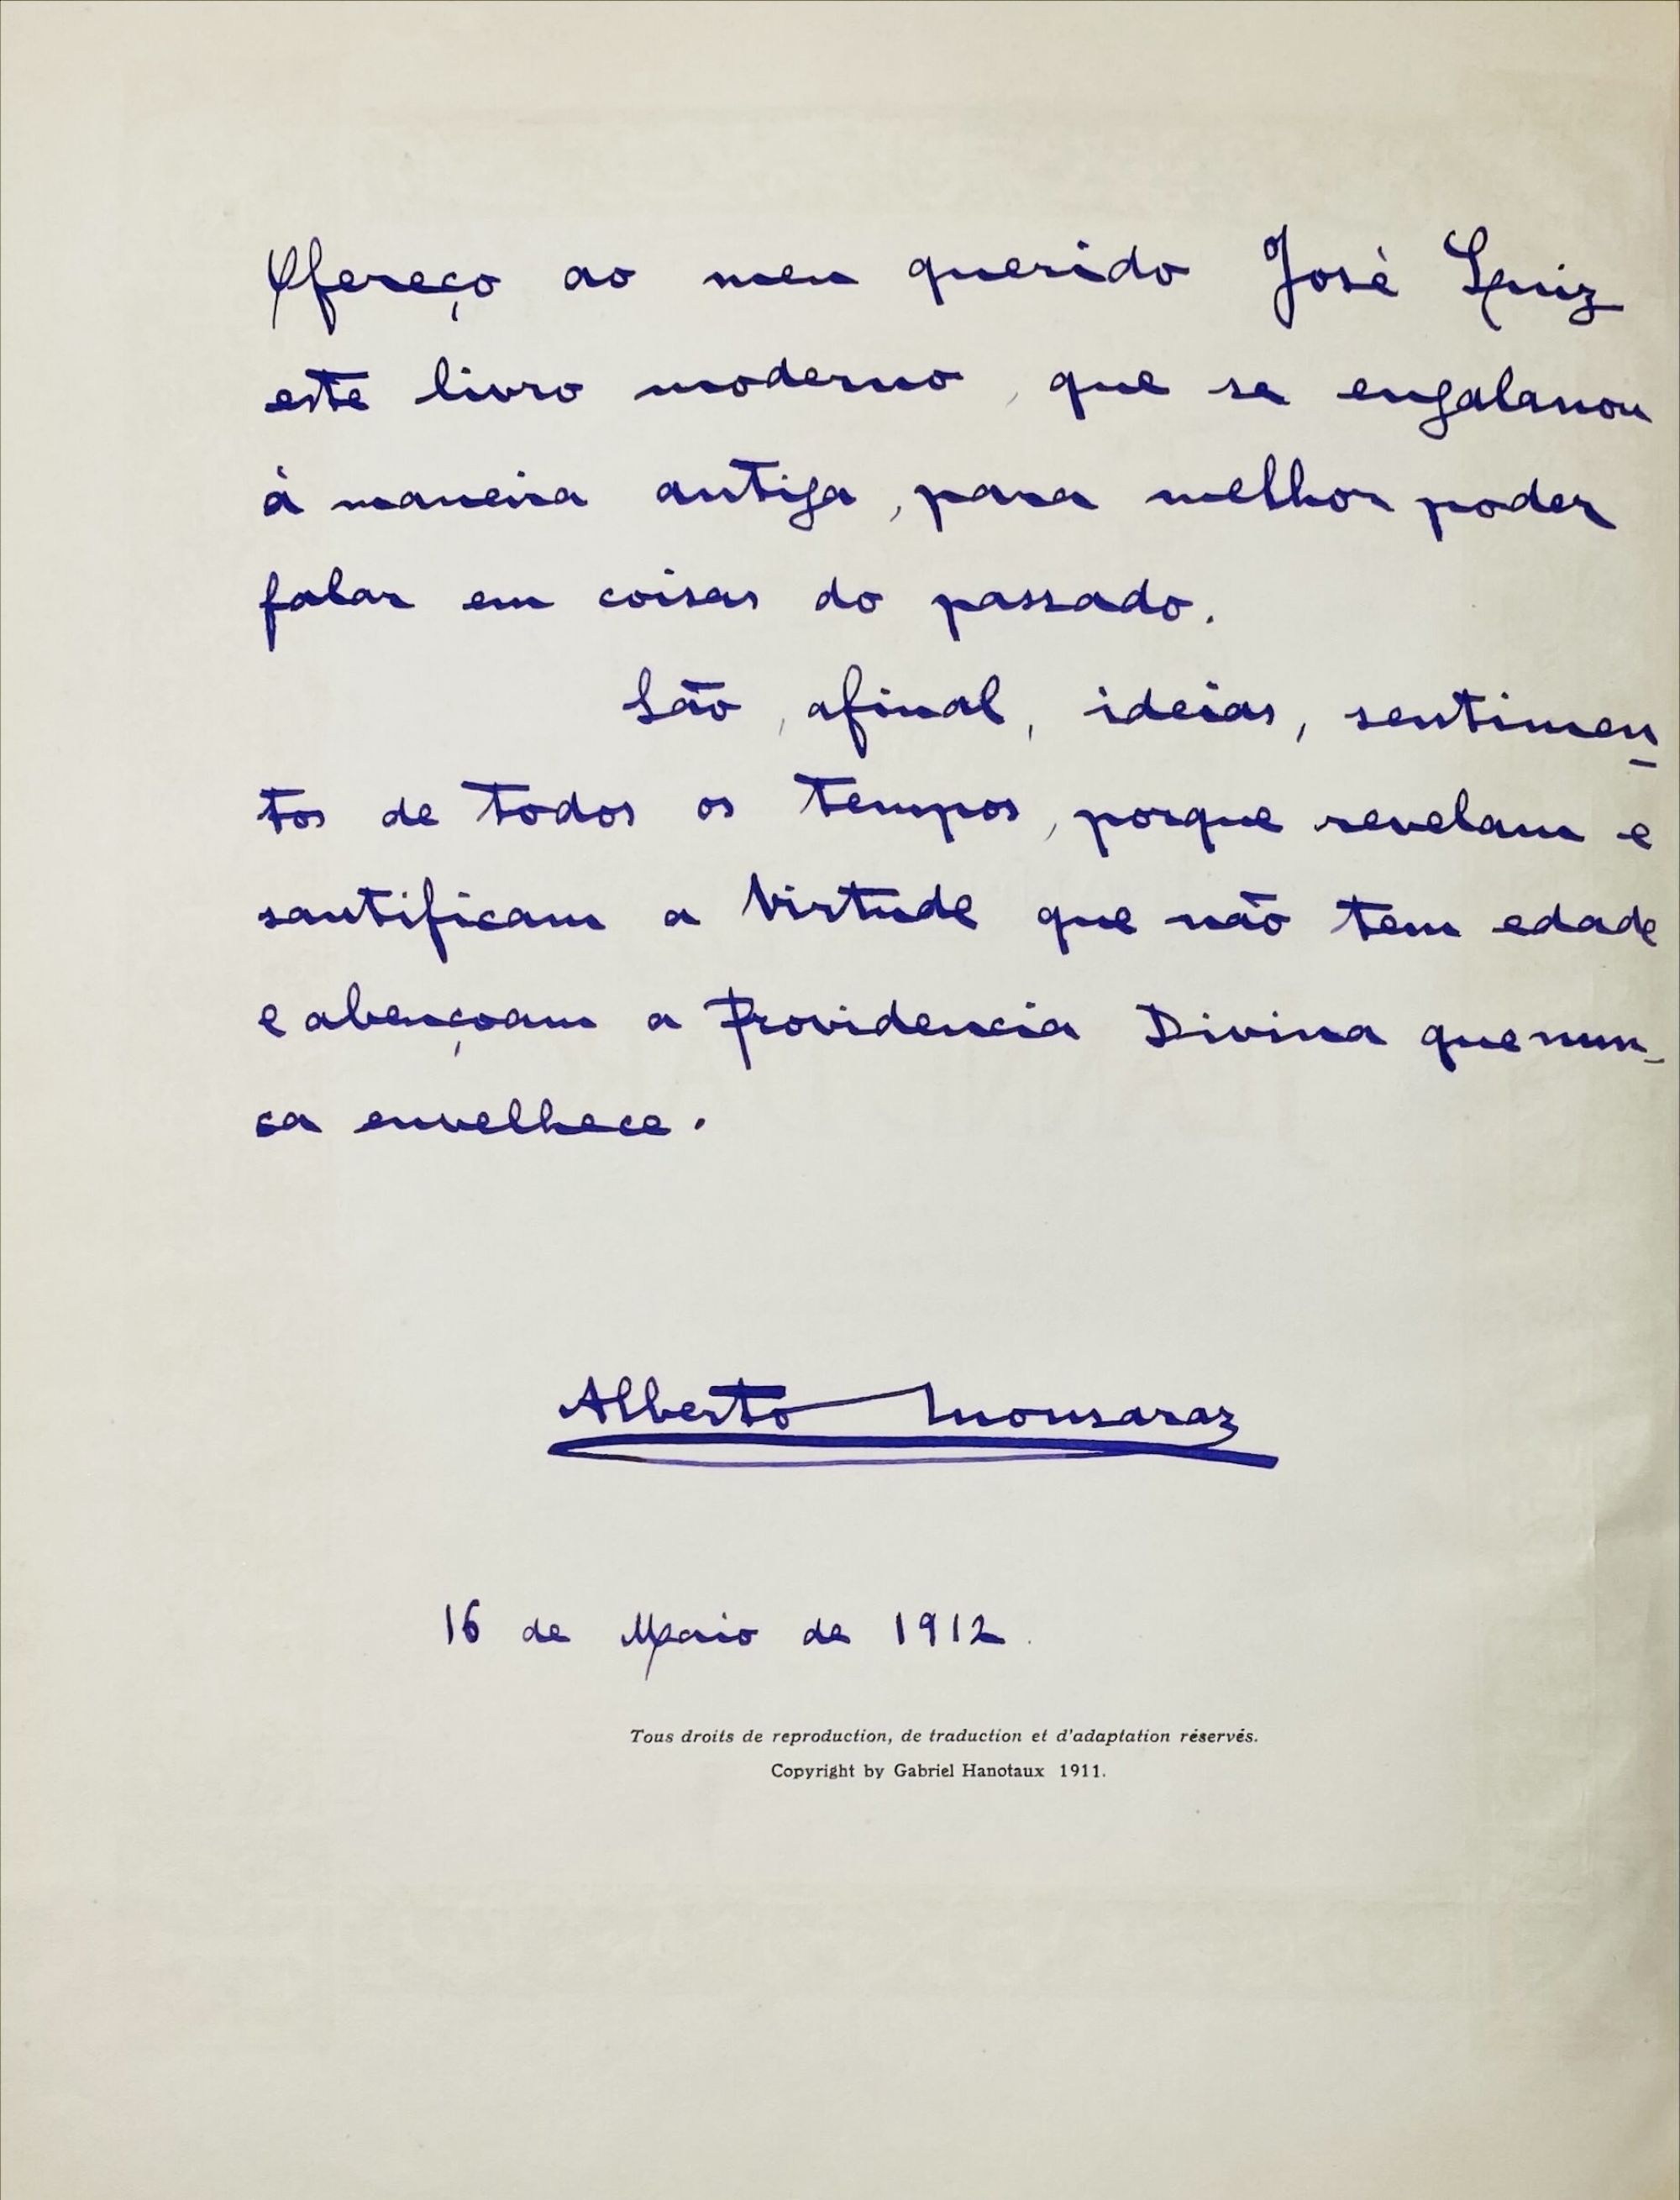 Ofereço ao meu querido José Luiz
este livro moderno, que se engalanou
à maneira antiga, para melhor poder
falar em coisas do passado.
São, afinal, ideias, sentimen-
tos de todos os tempos, porque revelam e
santificam a Virtude que não tem edade
e abençoam a Providencia Divina que nun-
ca envelhece.
Alberto Monsaraz
16 de Maio de 1912.
Tous droits de reproduction, de traduction et d'adaptation réservés.
Copyright by Gabriel Hanotaux 1911.